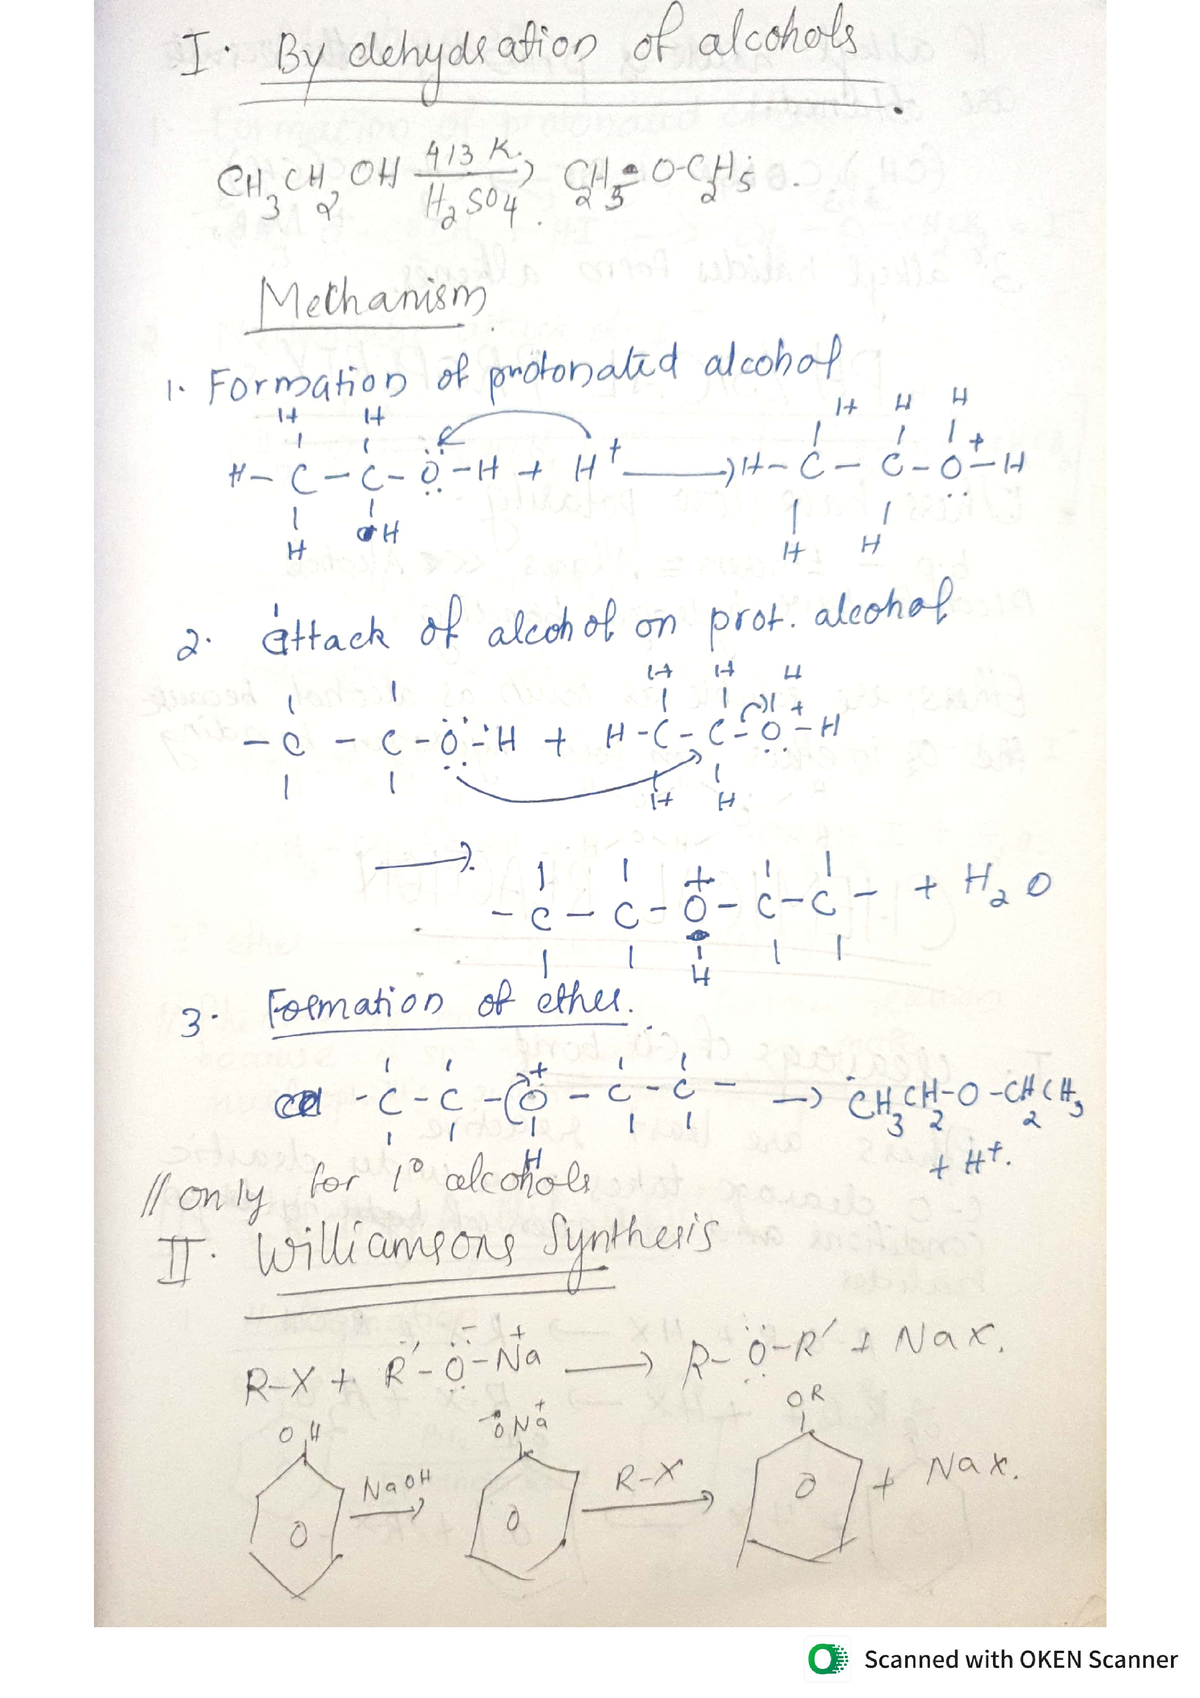 I. By dehydration of alcohols.
CH3CH2OH 413 K. H2SO4. → C2H5-O-C2H5.
Mechanism.
1. Formation of protonated alcohol
H H H H H
H - C - C - Ö - H + H+ → H - C - C - O+ - H
H H H H
2. attack of alcohol on prot. alcohol
H H H
- C - C - Ö - H + H - C - C - O+ - H
H H
→ - C - C - O+ - C - C - + H2O
H
3. Formation of ether.
- C - C - O+ - C - C - → CH3CH2-O-CH2CH3
H + H+.
// only for 1° alcohols
II. Williamsons Synthesis
R-X + R'-Ö- Na+ → R-Ö-R' + NaX.
OH -ONa+ OR
NaOH → R-X → + NaX.
Scanned with OKEN Scanner